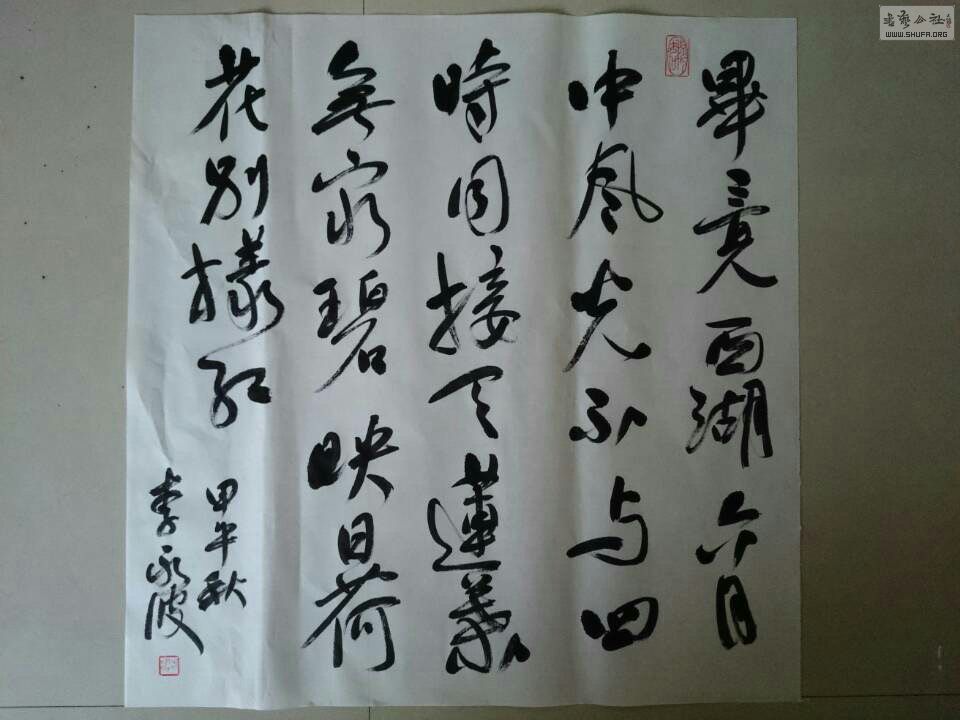 畢竟西湖六月
中風光不与四
時同接天蓮葉
無窮碧映日荷
花别樣紅
甲午秋
李永波
书艺公社
WWW.SHUFA.ORG